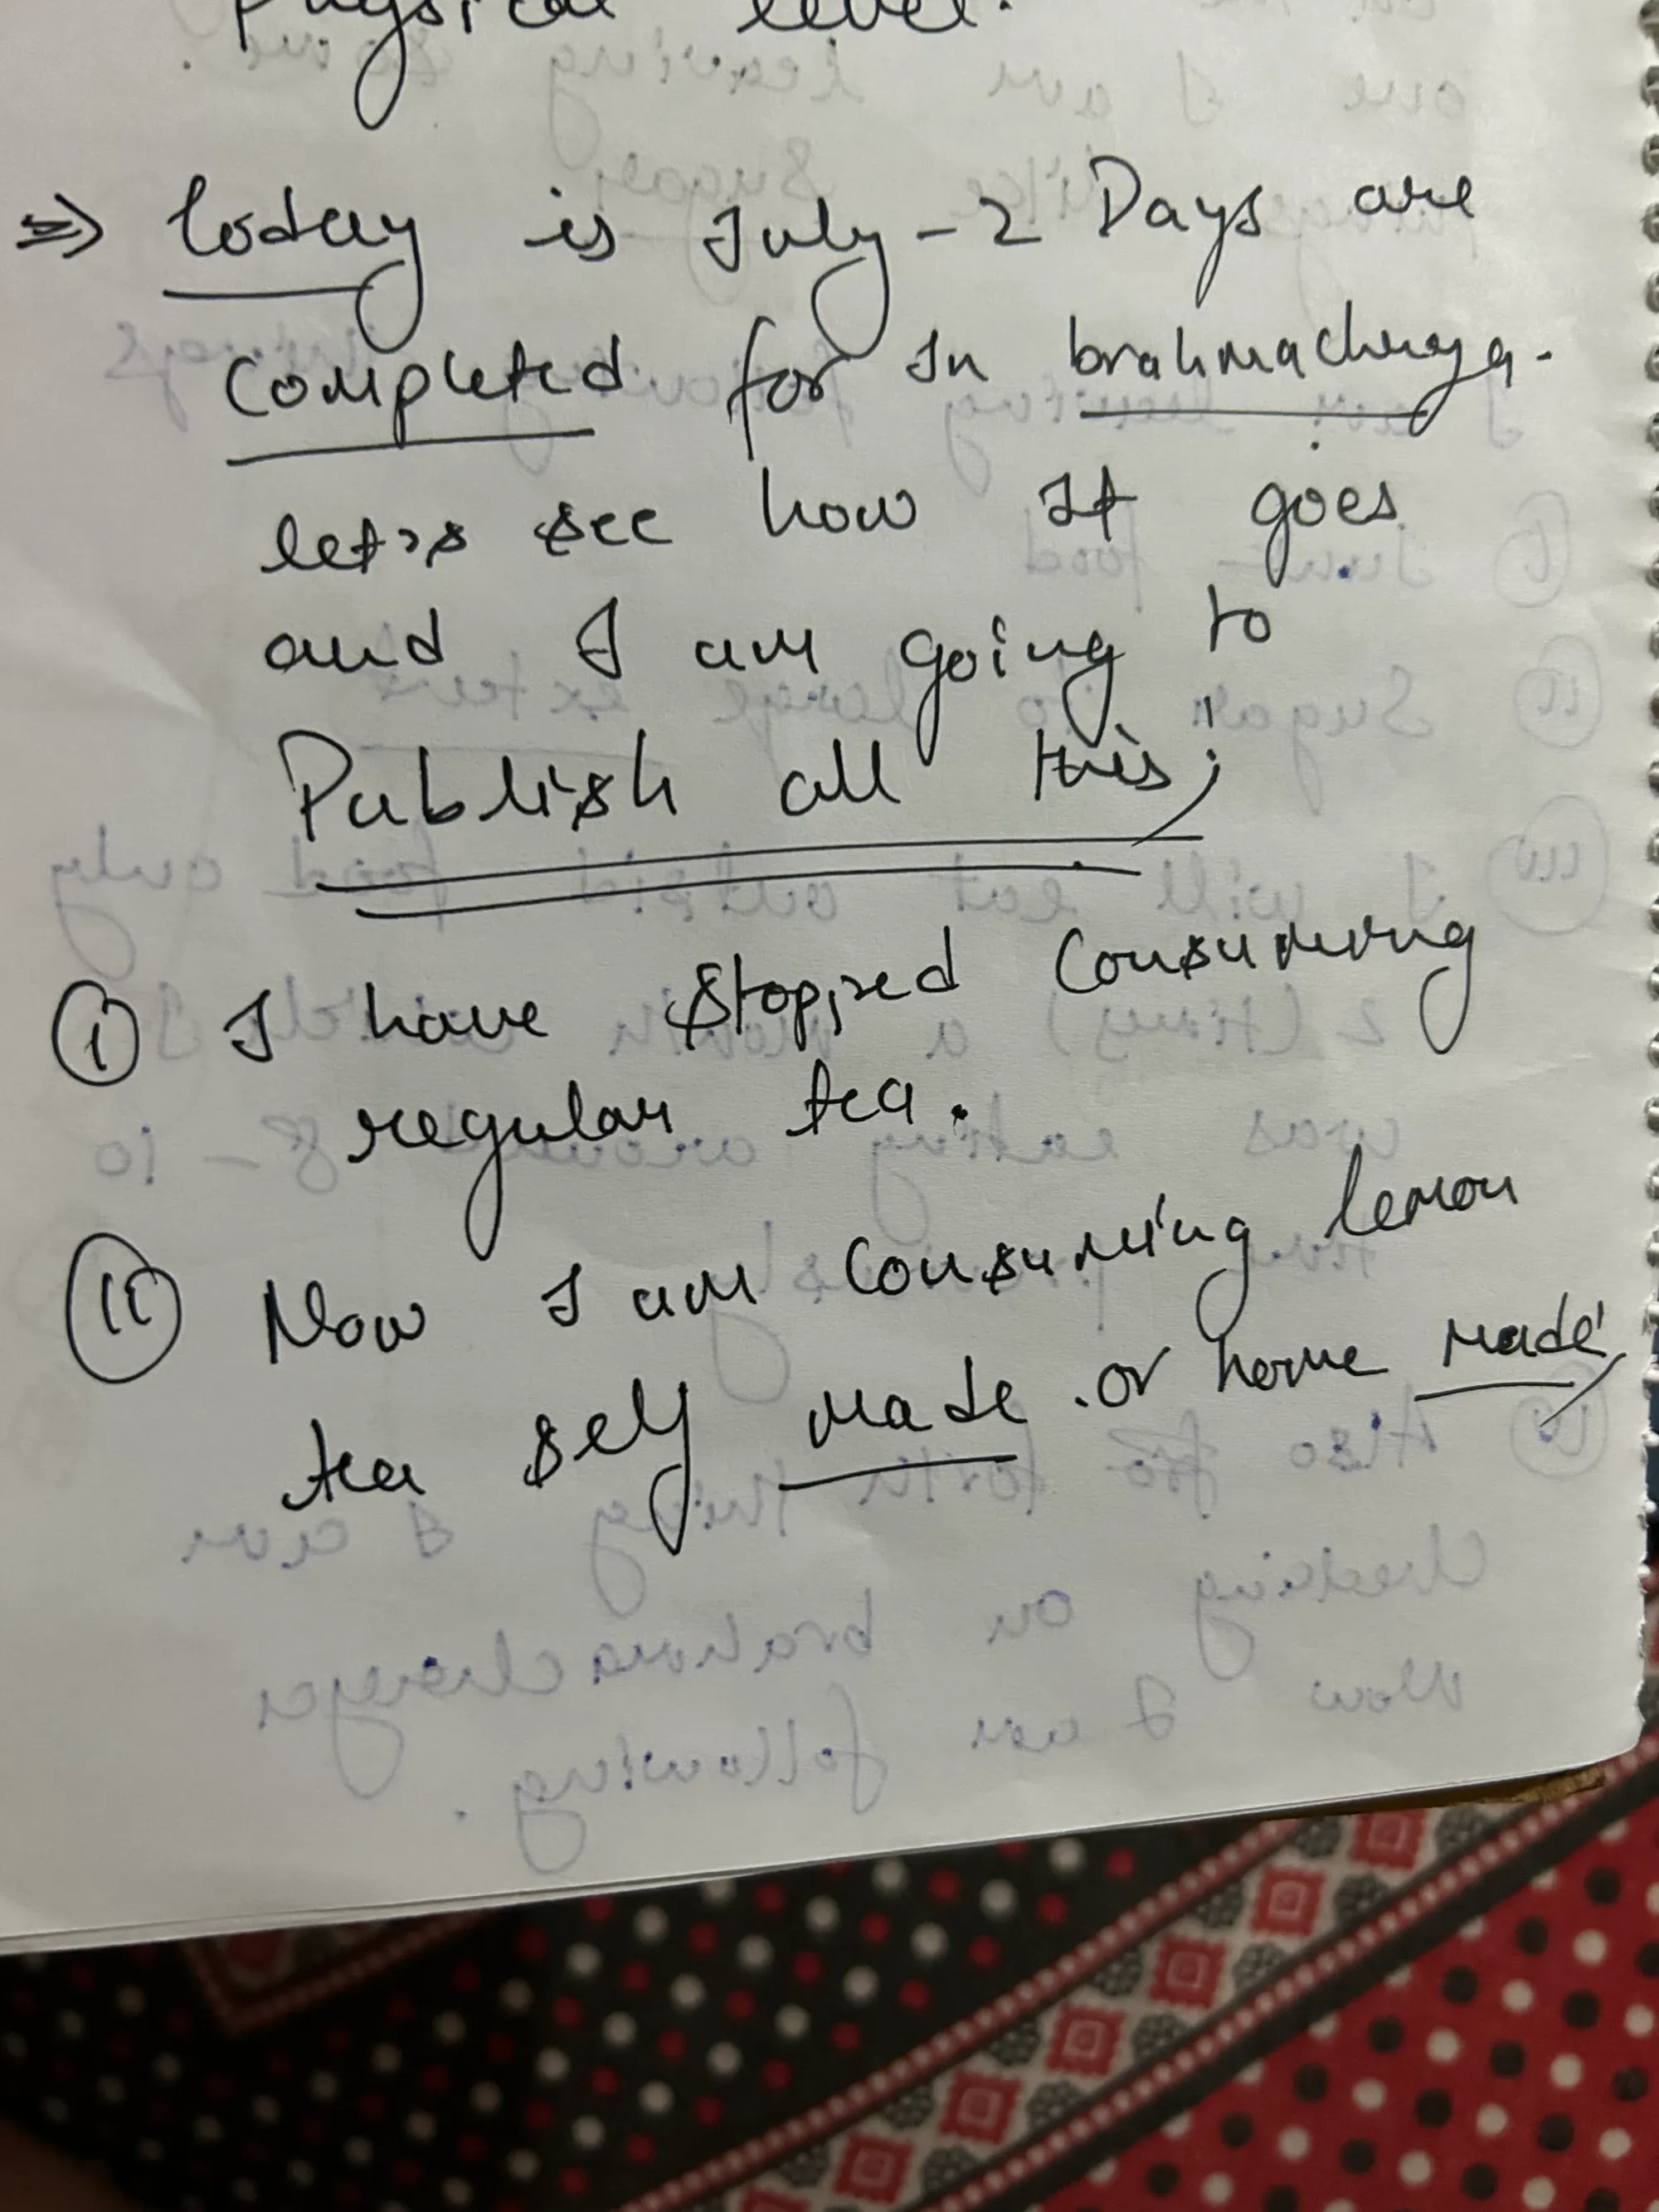 Physical level.
⇒ today is July - 2 Days are
completed for In brahmacherya.
let's see how It goes
and I am going to
Publish all this;
(i) I have stopped consuming
regular tea.
(ii) Now I am consuming lemon
tea self made or home made